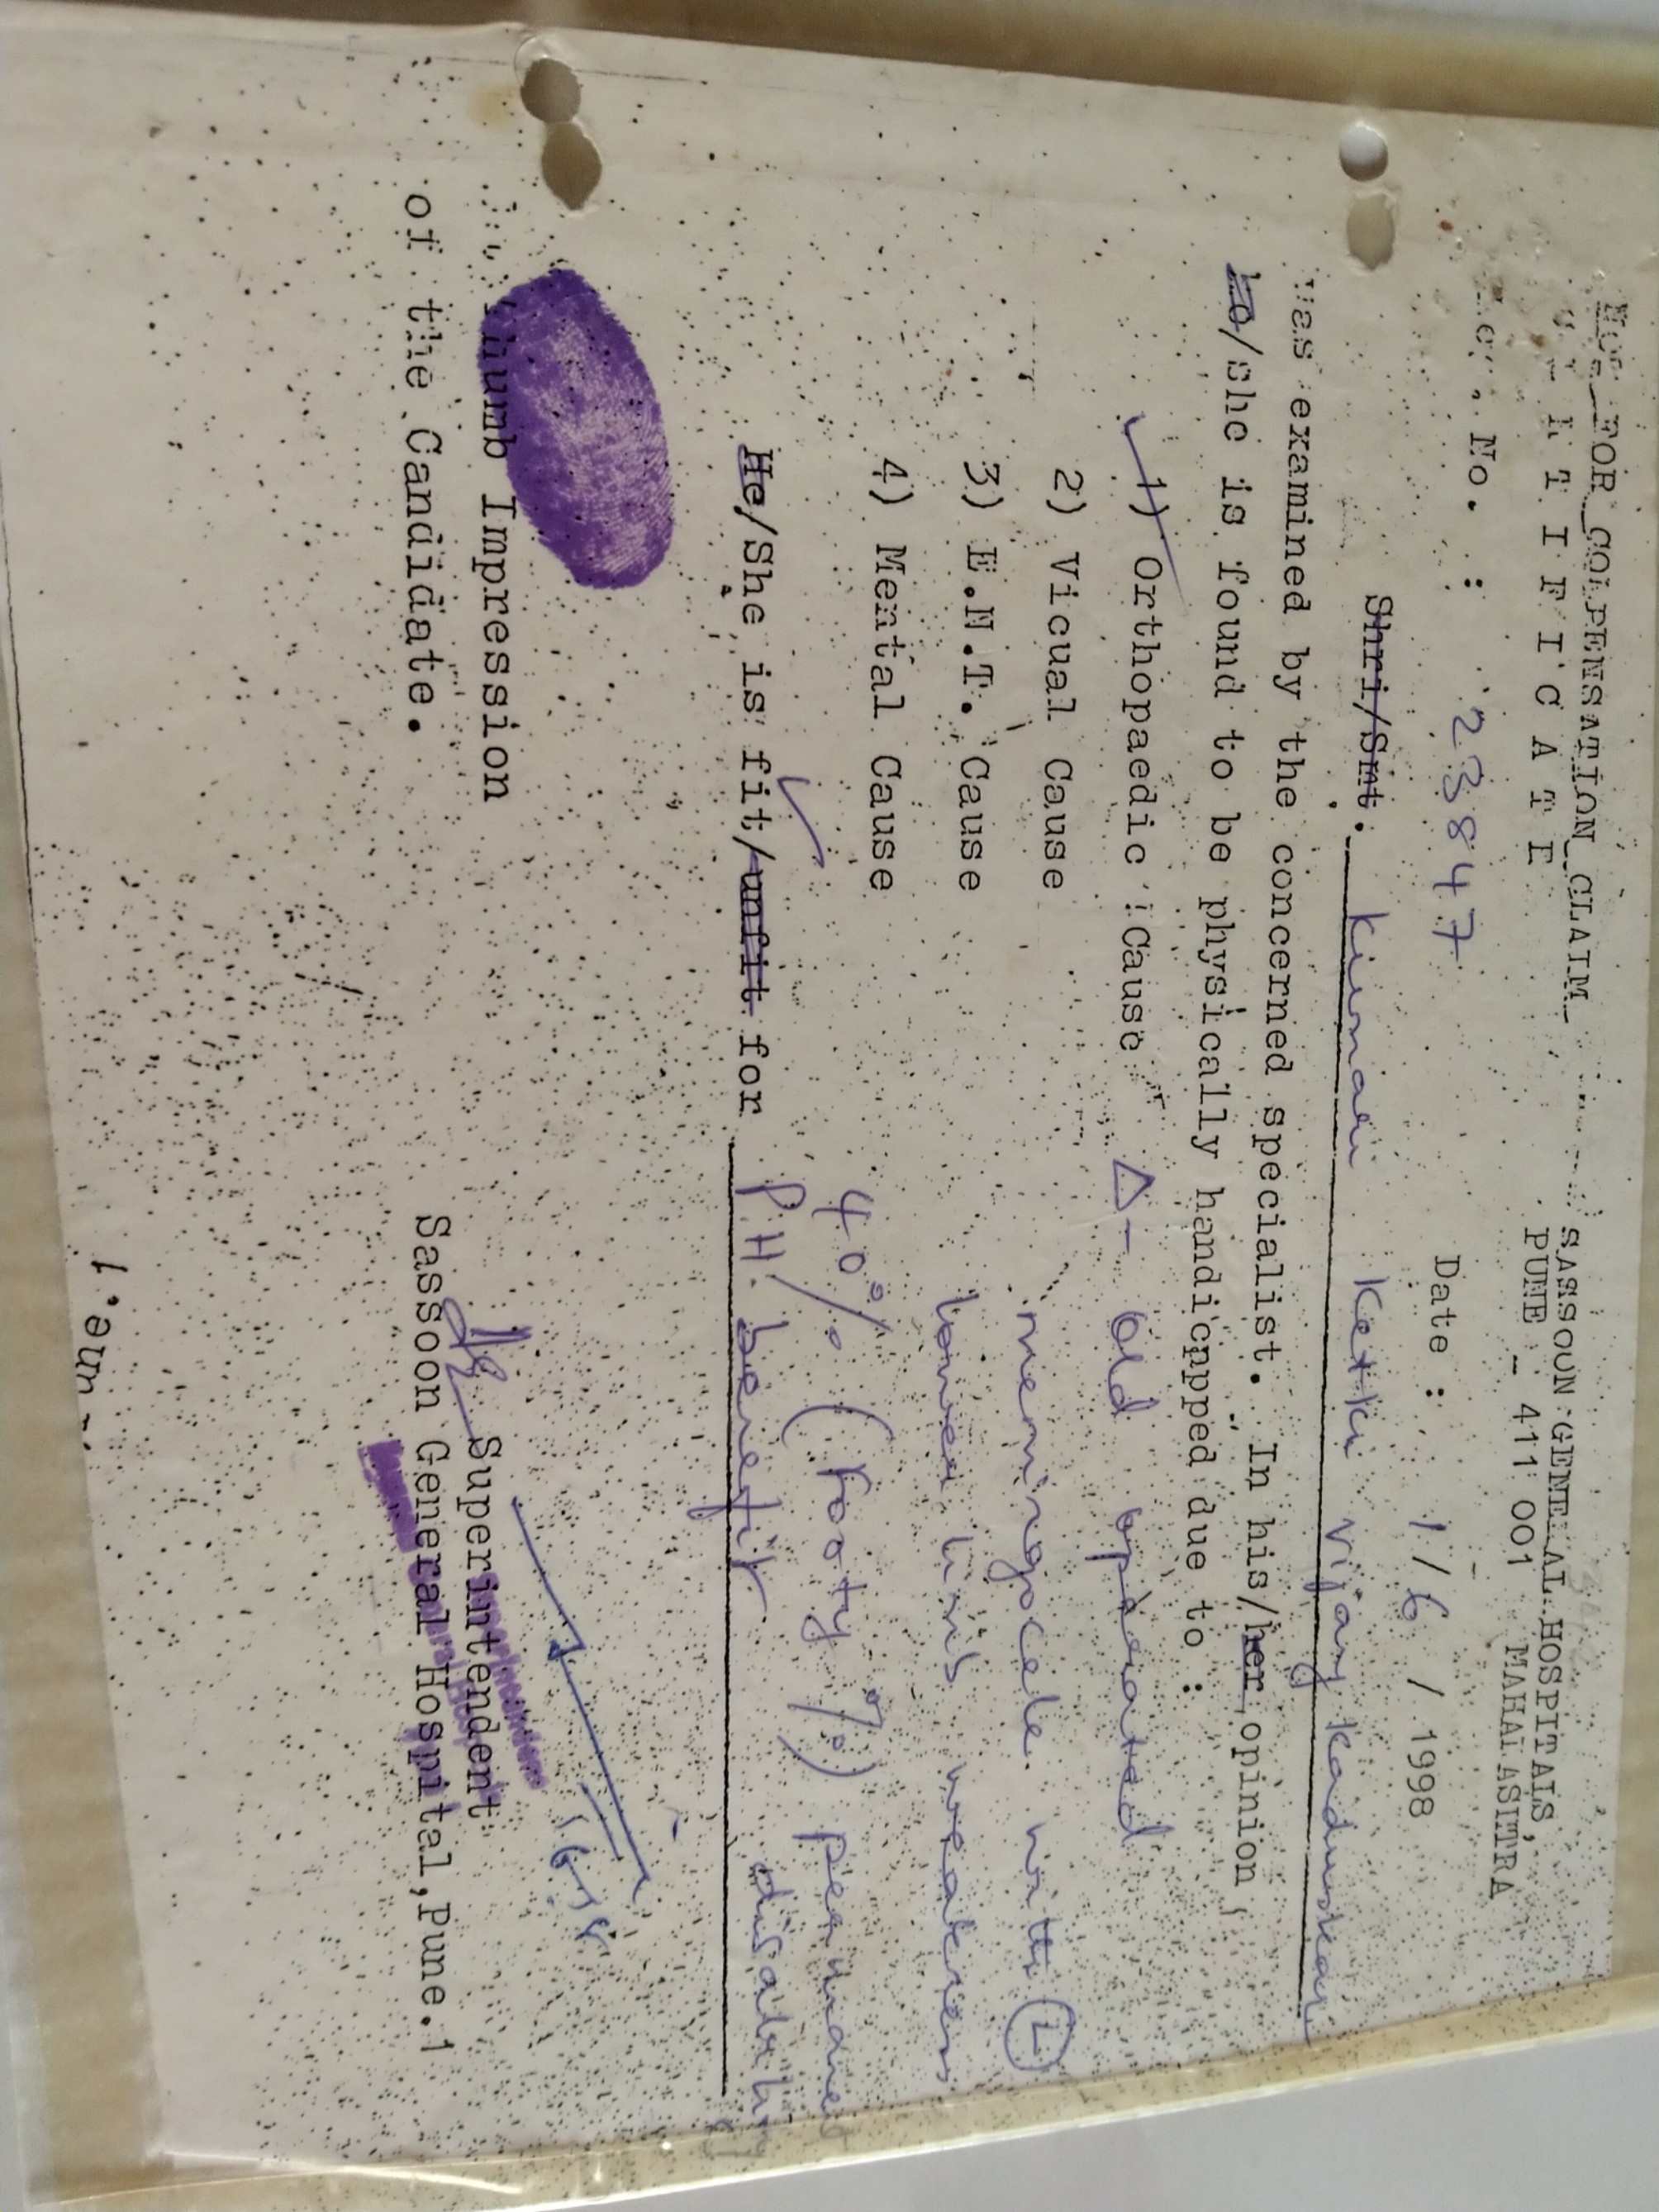 NOT FOR COMPENSATION CLAIM
SASSOON GENERAL HOSPITALS,
PUNE - 411 001 MAHARASHTRA
C E R T I F I C A T E
No. : 23847 Date : 1 / 6 / 1998
Shri/Smt. Kumari Ketki Vijay Kaduskar
was examined by the concerned specialist. In his/her opinion
he/she is found to be physically handicpped due to :
1) Orthopaedic Cause Δ- Old operated
2) Vicual Cause meningocele with (L)
3) E.N.T. Cause lower limb weakness
4) Mental Cause 40% (Footy %) permanent
disability
He/She is fit/unfit for P.H. benefit
Thumb Impression
of the Candidate.
Superintendent
Sassoon General Hospital, Pune.1